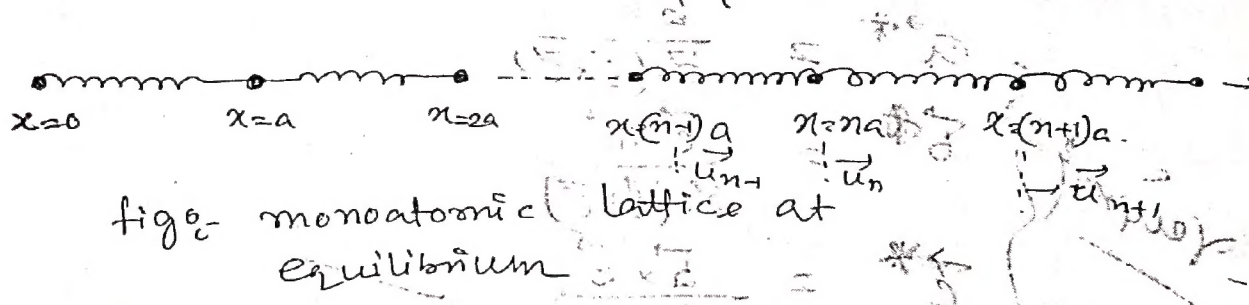 x=0 x=a x=2a x=(n-1)a x=na x=(n+1)a.
u⃗n-1 u⃗n u⃗n+1
fig:- monoatomic lattice at
equilibrium